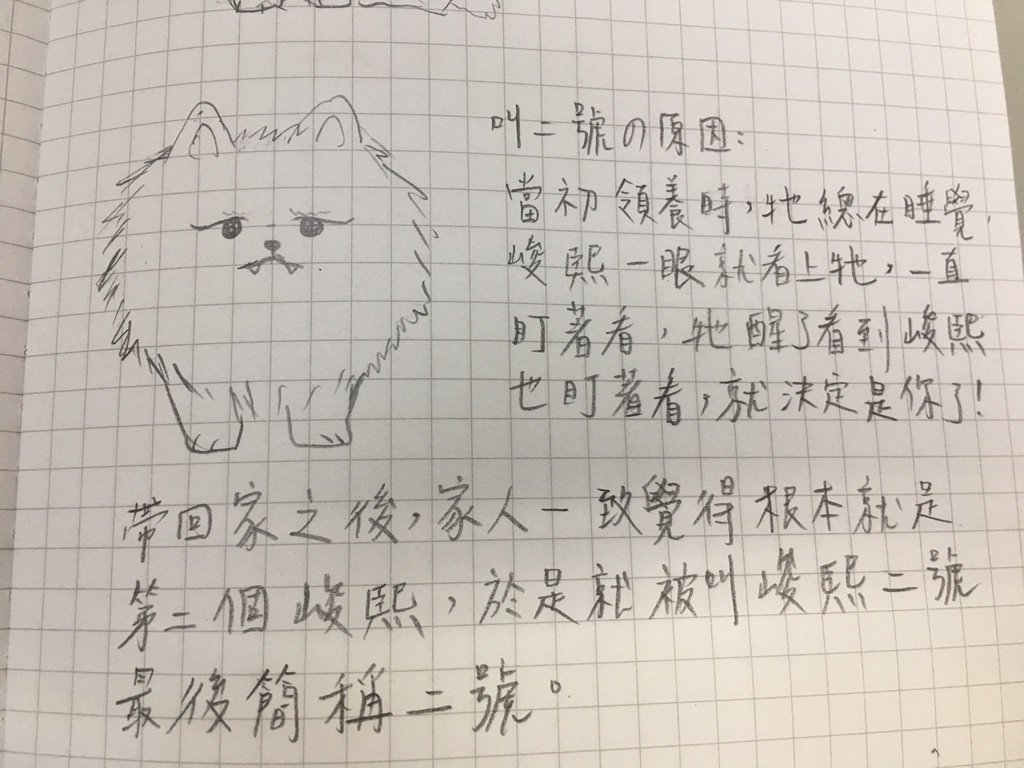 叫二號の原因：
當初領養時，牠總在睡覺，
峻熙一眼就看上牠，一直
盯著看，牠醒了看到峻熙
也盯著看，就決定是你了！
帶回家之後，家人一致覺得根本就是
第二個峻熙，於是就被叫峻熙二號
最後簡稱二號。